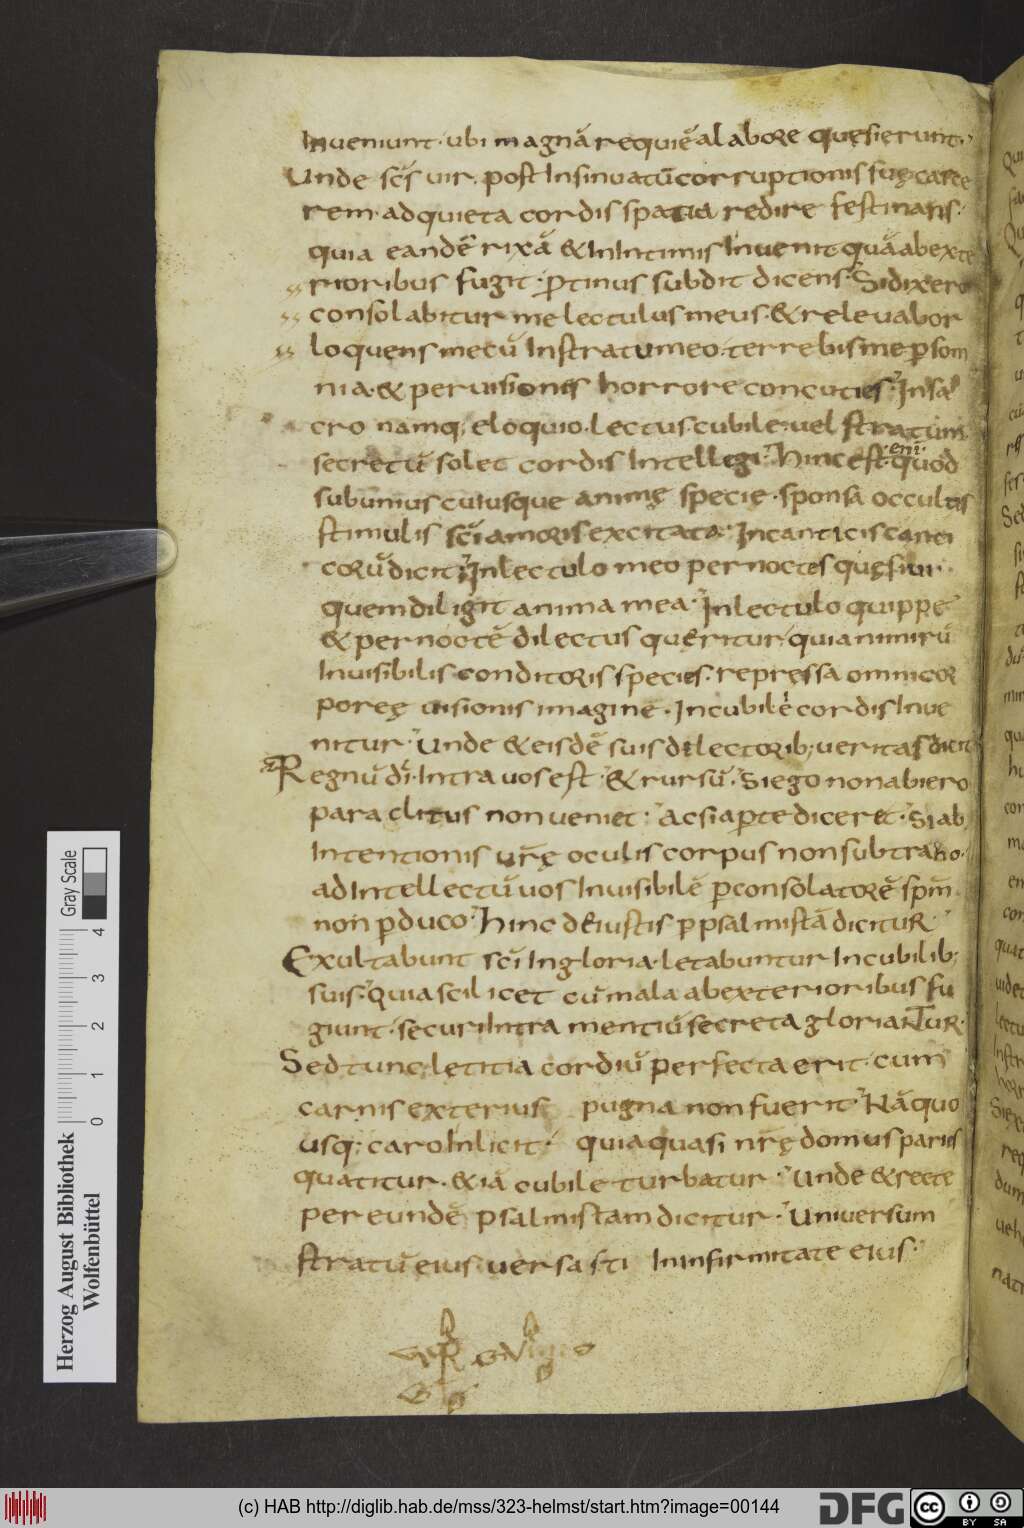 Inueniunt· ubi magnā requiē alabore quęsierunt·
Unde scs̄ uir· post Insinuatū corruptionis suę carce
rem· adquieta cordis spatia redire festinans·
quia eandē rixā & InIntimis Inuenit· quā abexte
rioribus fugit· ꝓtinus subdit dicens· Sidixero
consolabitur me lectulus meus· & releuabor
loquens mecū Instratu meo· terrebis me ꝑ som
nia· & per uisiones horrore concuties· Insa
cro namq; eloquio· lectus· cubile· uel stratum
secretū solet cordis Intellegi· hinc est· enī· quod
subunius cuiusque animę specię· sponsa occultis
stimulis sc̄i amoris excitata· Incanticis cantei
corū dicit· Inlectulo meo per noctes quęsiui·
quem diligit anima mea· Inlectulo quippe
& per noctē dilectus queritur· quia nimirū
Inuisibilis conditoris species· repressa omni cor
poreę uisionis imagine· Incubile cordis Inue
nitur· Unde & eisdē suis dilectorib; ueritas dicit
Regnū dī· Intra uos est· & rursū· Siego non abiero
paraclitus non ueniet· Ac si aperte diceret· Si ab
Intentionis ur̄ę oculis corpus non subtraho·
ad Intellectū uos Inuisibilē ꝑ consolatorē spm̄
non ꝑduco· hinc deiustis ꝑ psalmistā dicitur
Exultabunt sc̄i Ingloria· letabuntur Incubilib;
suis· Quia scilicet cū mala abexterioribus fu
giunt· securi Intra mentiū secreta gloriantur·
Sed tunc letitia cordiū perfecta erit· cum
carnis exterius pugna non fuerit· Nā quo
usq; caro Inlicit· quia quasi nr̄ę domus paries
quatitur· & iā cubile turbatur· Unde & recte
per eundē psalmistam dicitur· Uniuersum
stratū eius uersasti Ininfirmitate eius·
Herzog August Bibliothek
Wolfenbüttel
Gray Scale
0 1 2 3 4
(c) HAB http://diglib.hab.de/mss/323-helmst/start.htm?image=00144
DFG
cc BY SA